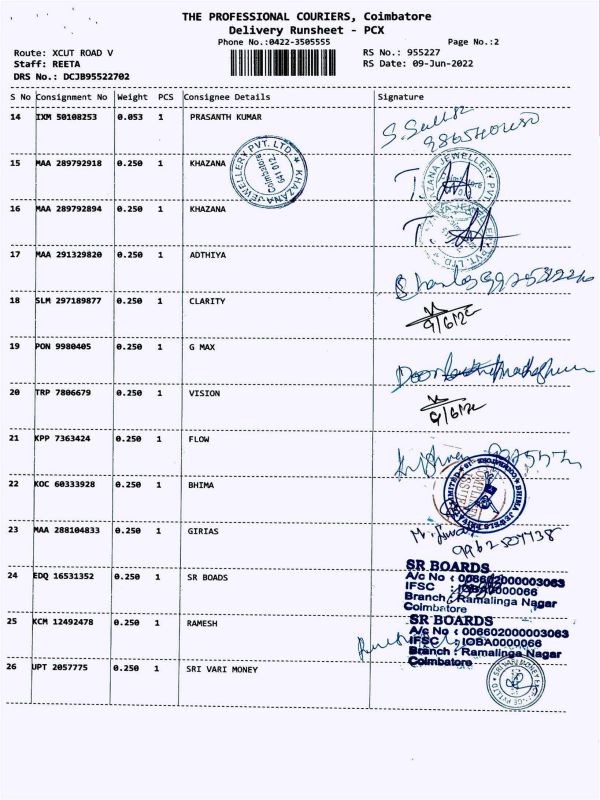 THE PROFESSIONAL COURIERS, Coimbatore
Delivery Runsheet - PCX
Phone No.:0422-3505555
Page No.:2
Route: XCUT ROAD V
RS No.: 955227
Staff: REETA
RS Date: 09-Jun-2022
DRS No.: DCJB95522702
S No Consignment No Weight PCS Consignee Details Signature
14 IXM 50108253 0.053 1 PRASANTH KUMAR
15 MAA 289792918 0.250 1 KHAZANA
KHAZANA JEWELLERY PVT. LTD.
Coimbatore
641 012
16 MAA 289792894 0.250 1 KHAZANA
17 MAA 291329820 0.250 1 ADTHIYA
18 SLM 297189877 0.250 1 CLARITY
9/6/22
19 PON 9980405 0.250 1 G MAX
20 TRP 7806679 0.250 1 VISION
9/6/22
21 KPP 7363424 0.250 1 FLOW
22 KOC 60333928 0.250 1 BHIMA
23 MAA 288104833 0.250 1 GIRIAS
24 EDQ 16531352 0.250 1 SR BOADS
SR BOARDS
A/c No : 006602000003063
IFSC : IOBA0000066
Branch : Ramalinga Nagar
Coimbatore
25 KCM 12492478 0.250 1 RAMESH
SR BOARDS
A/c No : 006602000003063
IFSC : IOBA0000066
Branch : Ramalinga Nagar
Coimbatore
26 UPT 2057775 0.250 1 SRI VARI MONEY